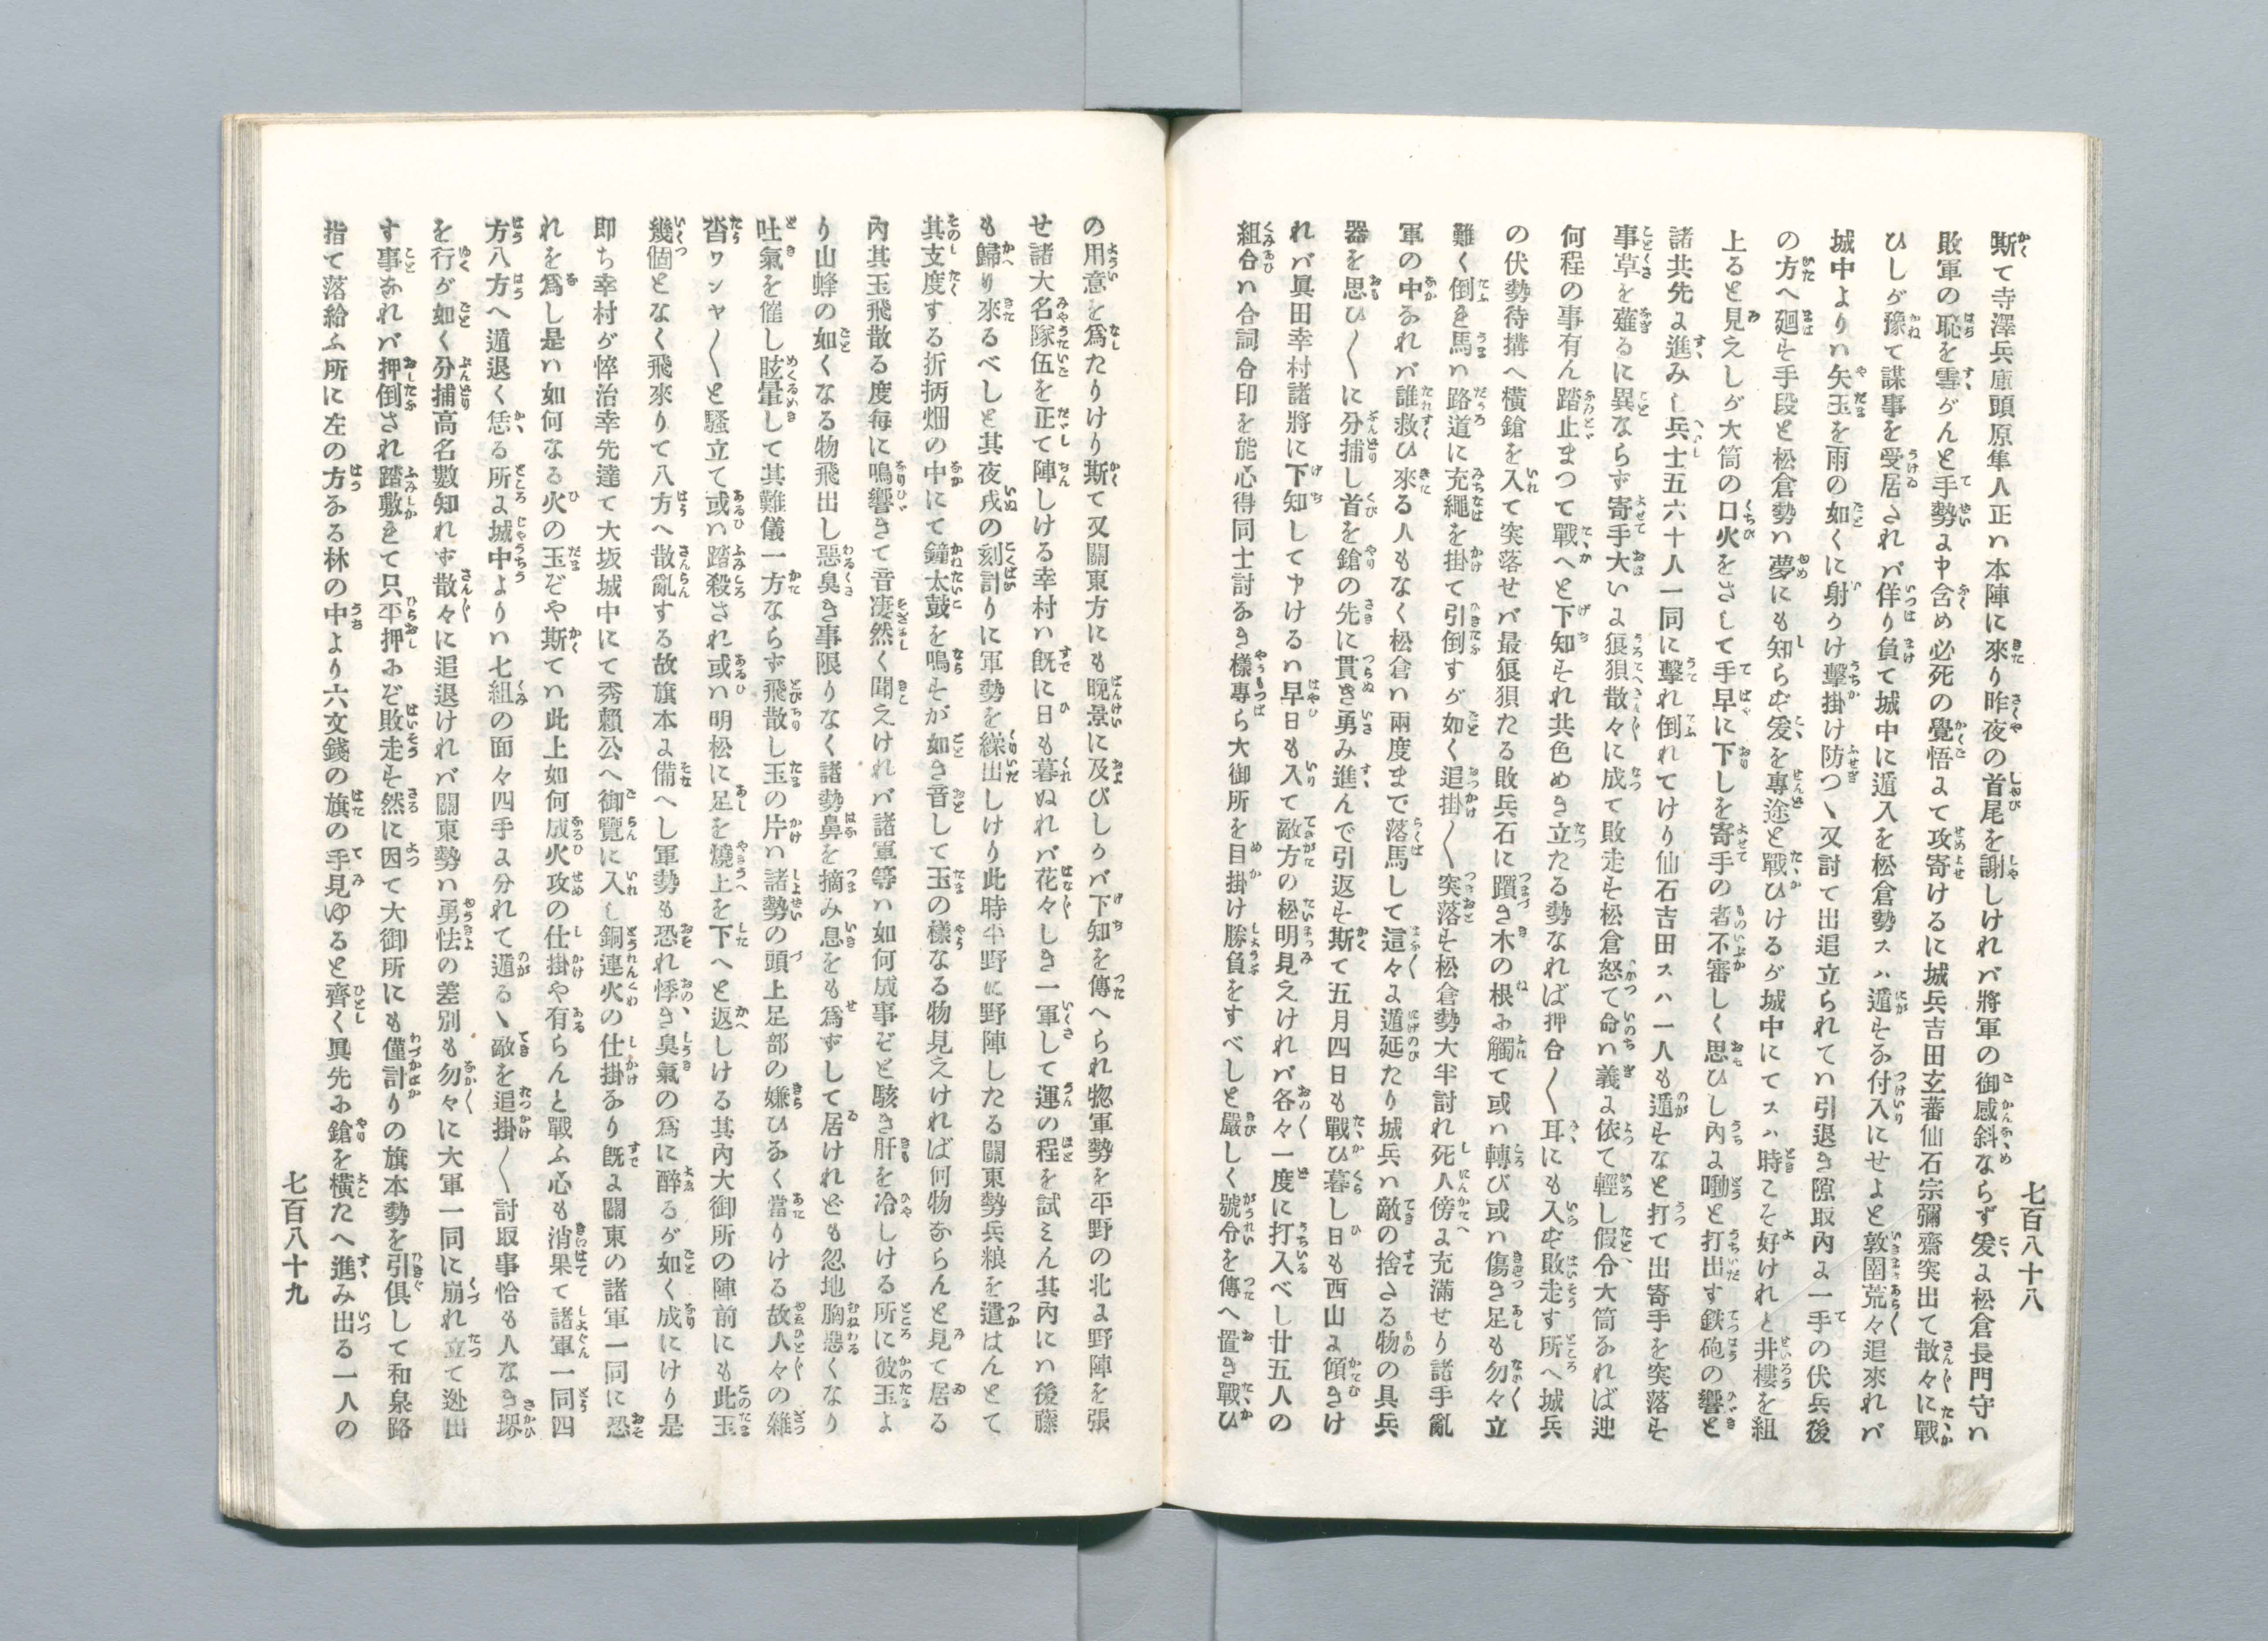 七百八十八
斯て寺澤兵庫頭原隼人正ハ本陣に來り昨夜の首尾を謝しけれバ將軍の御感斜ならず爰よ松倉長門守ハ
敗軍の恥を雪がんと手勢よ申含め必死の覺悟よて攻寄けるに城兵吉田玄蕃仙石宗彌齋突出て散々に戰
ひしが豫て謀事を受居されバ佯り負て城中に遁入を松倉勢スハ遁すな付入にせよと敦圉荒々追來れバ
城中よりハ矢玉を雨の如くに射かけ擊掛け防つゝ又討て出追立られてハ引退き隙取內よ一手の伏兵後
の方へ廻す手段と松倉勢ハ夢にも知らず爰を專途と戰ひけるが城中にてスハ時こそ好けれと井樓を組
上ると見えしが大筒の口火をさして手早に下しを寄手の者不審しく思ひし內よ嘞と打出す鉄砲の響と
諸共先よ進みし兵士五六十人一同に擊れ倒れてけり仙石吉田スハ一人も遁すなと打て出寄手を突落す
事草を薙るに異ならず寄手大いよ狼狽散々に成て敗走す松倉怒て命ハ義よ依て輕し假令大筒なれば迚
何程の事有ん踏止まつて戰へと下知すれ共色めき立たる勢なれば押合〱耳にも入ず敗走す所へ城兵
の伏勢待搆へ橫鎗を入て突落せバ最狼狽たる敗兵石に躓き木の根み觸て或ハ轉び或ハ傷き足も勿々立
難く倒き馬ハ路道に充繩を掛て引倒すが如く追掛〱突落す松倉勢大半討れ死人傍よ充滿せり諸手亂
軍の中なれバ誰救ひ來る人もなく松倉ハ兩度まで落馬して這々よ遁延たり城兵ハ敵の捨さる物の具兵
器を思ひ〱に分捕し首を鎗の先に貫き勇み進んで引返す斯て五月四日も戰ひ暮し日も西山よ傾きけ
れバ眞田幸村諸將に下知して申けるハ早日も入て敵方の松明見えけれバ各々一度に打入べし廿五人の
組合ハ合詞合印を能心得同士討なき樣專ら大御所を目掛け勝負をすべしと嚴しく號令を傳へ置き戰ひ
の用意を爲たりけり斯て又關東方にも晩景に及びしかバ下知を傳へられ惣軍勢を平野の北よ野陣を張
せ諸大名隊伍を正て陣しける幸村ハ旣に日も暮ぬれバ花々しき一軍して運の程を試ミん其內にハ後藤
も歸り來るべしと其夜戌の刻計りに軍勢を繰出しけり此時平野に野陣したる關東勢兵粮を遣はんとて
其支度する折柄畑の中にて鐘太鼓を鳴すが如き音して玉の樣なる物見えければ何物ならんと見て居る
內其玉飛散る度每に鳴響きて音凄然く聞えけれバ諸軍等ハ如何成事ぞと駭き肝を冷しける所に彼玉よ
り山蜂の如くなる物飛出し惡臭き事限りなく諸勢鼻を摘み息をも爲ずして居けれども忽地胸惡くなり
吐氣を催し眩暈して其難儀一方ならず飛散し玉の片ハ諸勢の頭上足部の嫌ひなく當りける故人々の雜
沓ワシヤ〱と騷立て或ハ踏殺され或ハ明松に足を燒上を下へと返しける其內大御所の陣前にも此玉
幾個となく飛來りて八方へ散亂する故旗本よ備へし軍勢も恐れ悸き臭氣の爲に醉るが如く成にけり是
卽ち幸村が悴治幸先達て大坂城中にて秀賴公へ御覽に入し銅連火の仕掛なり旣よ關東の諸軍一同に恐
れを爲し是ハ如何なる火の玉ぞや斯てハ此上如何成火攻の仕掛や有らんと戰ふ心も消果て諸軍一同四
方八方へ遁退く恁る所よ城中よりハ七組の面々四手よ分れて遁るゝ敵を追掛〱討取事恰も人なき堺
を行が如く分捕高名數知れず散々に追退けれバ關東勢ハ勇怯の差別も勿々に大軍一同に崩れ立て迯出
す事なれバ押倒され踏敷れて只平押みぞ敗走す然に因て大御所にも僅計りの旗本勢を引俱して和泉路
指て落給ふ所に左の方なる林の中より六文錢の旗の手見ゆると齊く眞先み鎗を橫たへ進み出る一人の
七百八十九